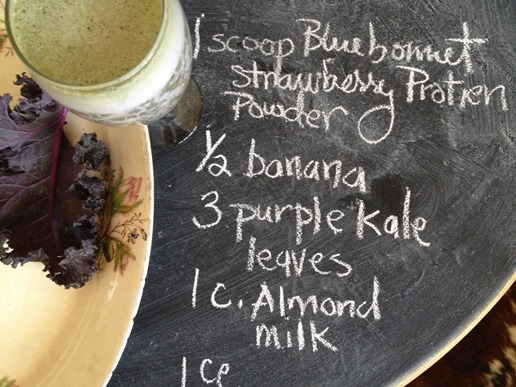 1 scoop Bluebonnet
strawberry Protien
Powder
1/2 banana
3 purple kale
leaves
1 c. Almond
milk
Ice